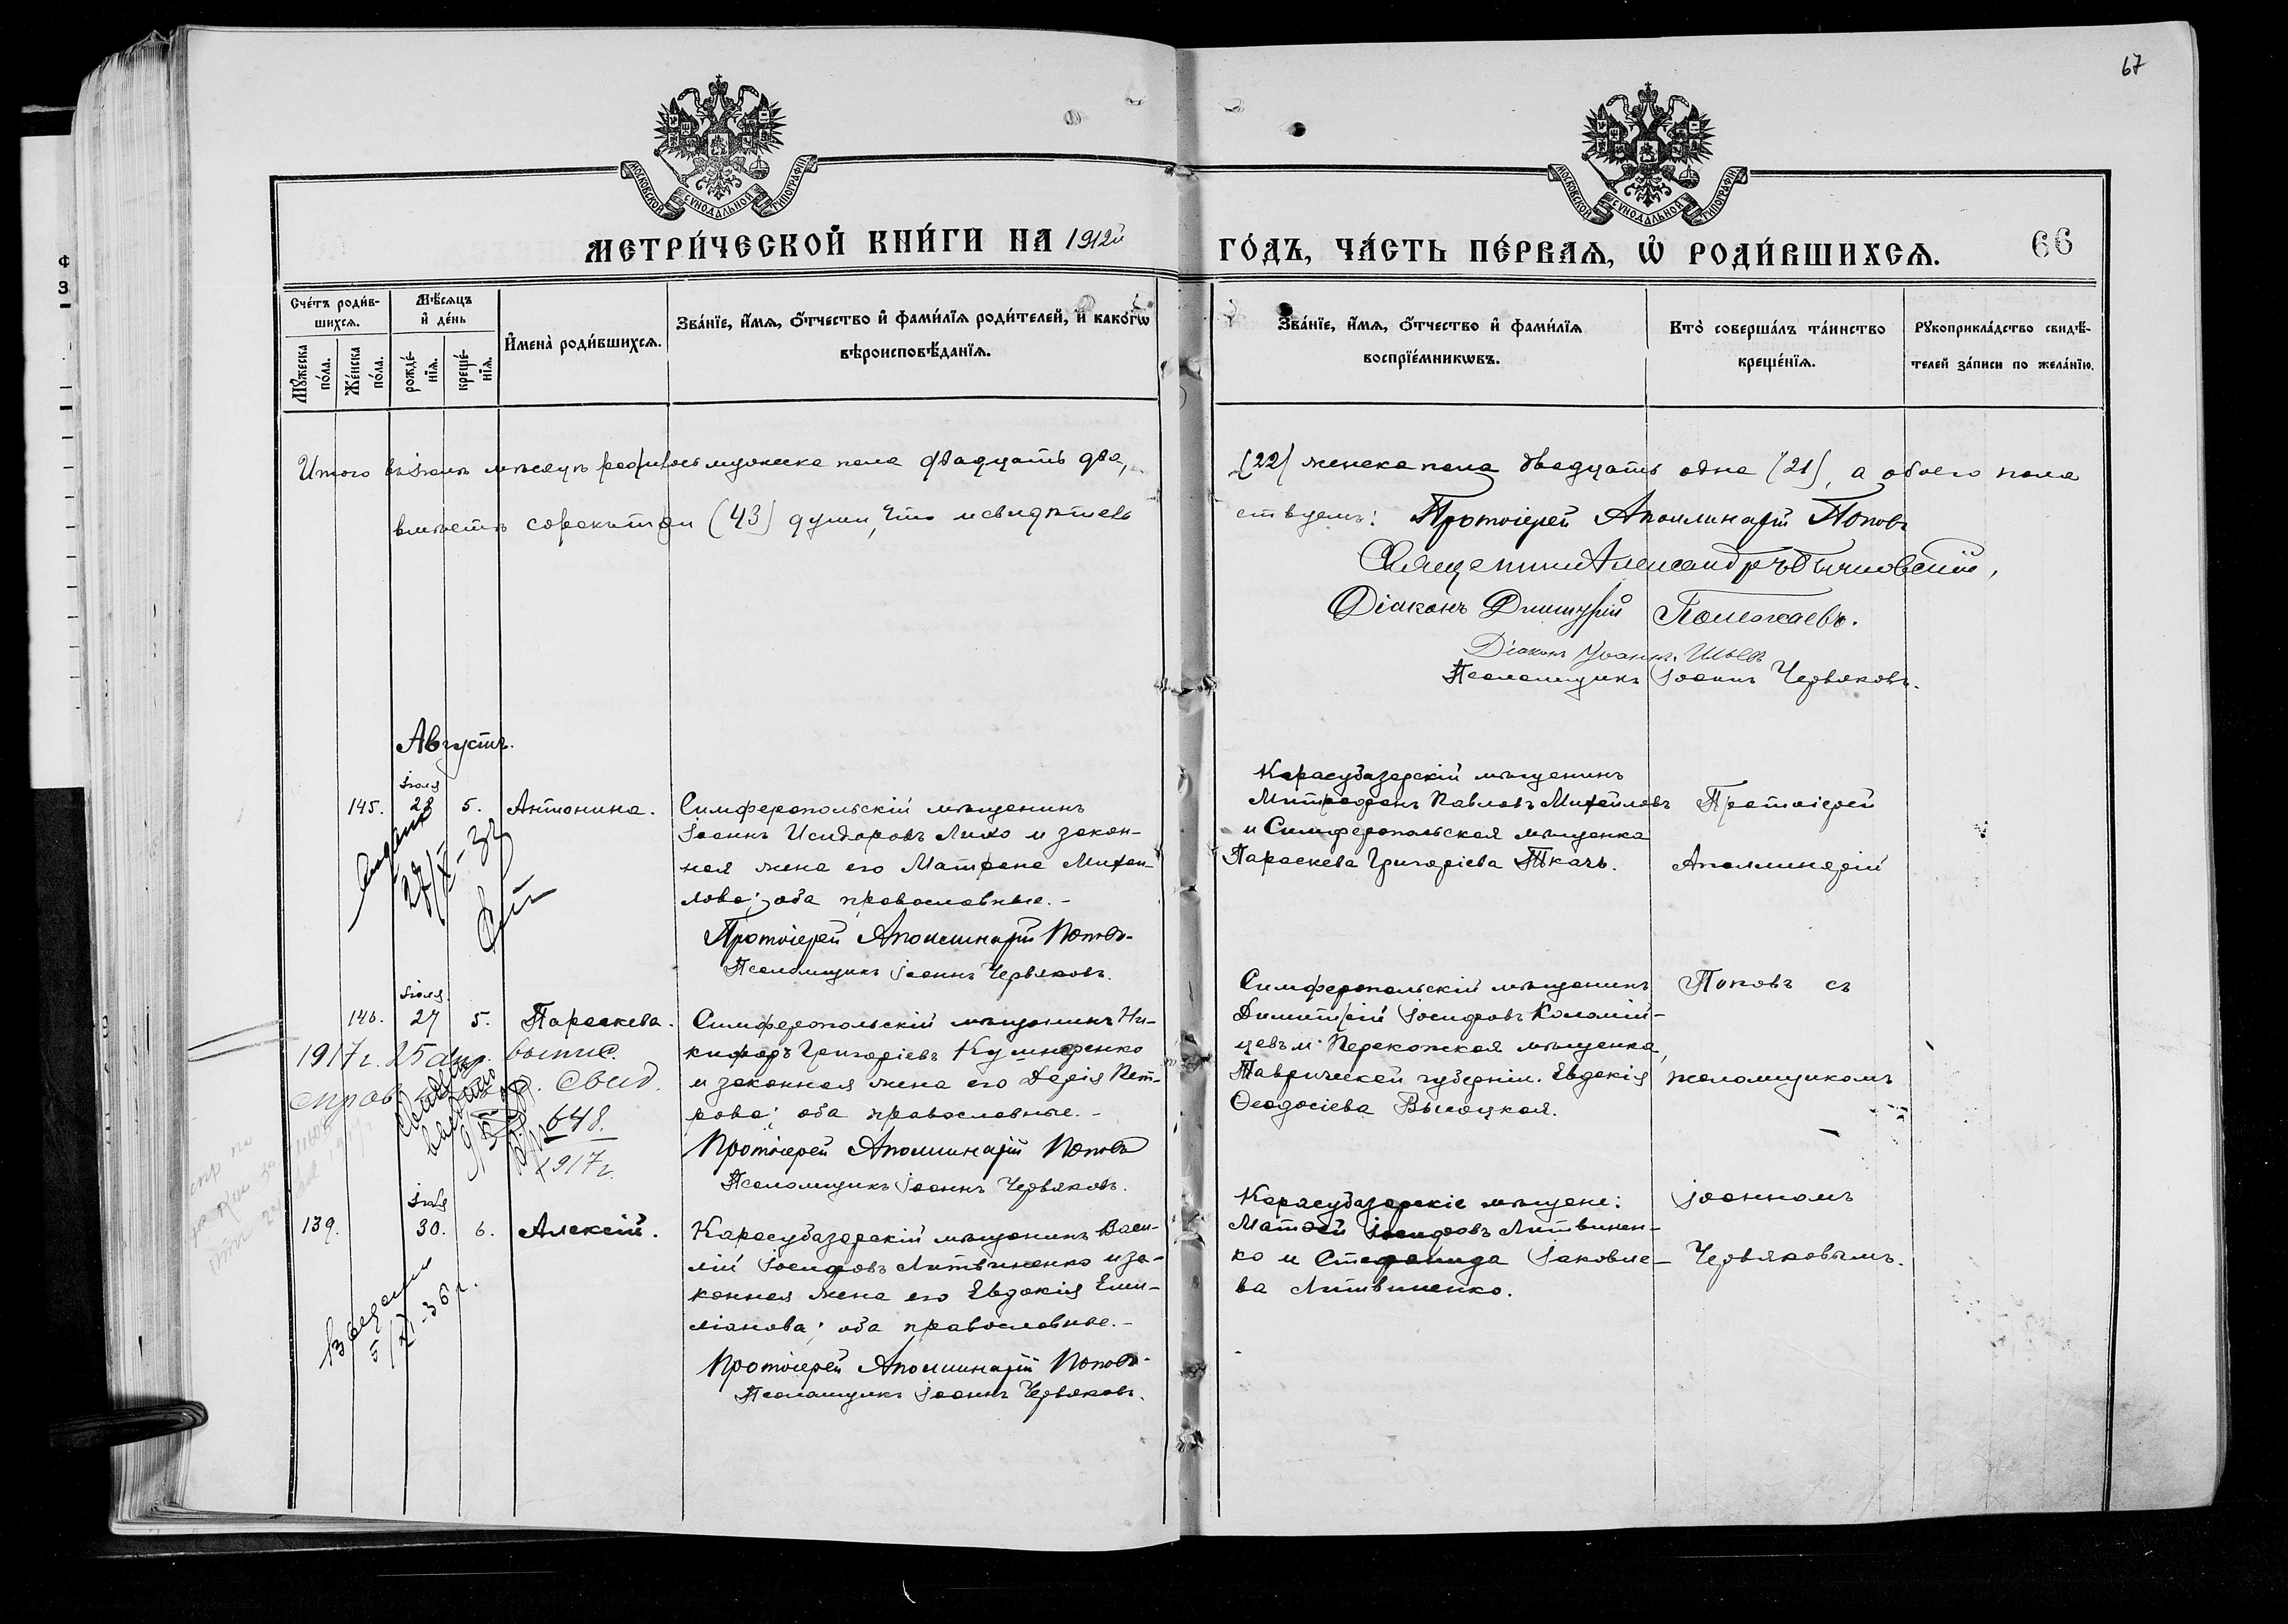 67
МОСКОВСКОЙ СѴНОДАЛЬНОЙ ТИПОГРАФІИ
МОСКОВСКОЙ СѴНОДАЛЬНОЙ ТИПОГРАФІИ
МЕТРИ́ЧЕСКОЙ КНИ́ГИ НА 1912й ГО́ДЪ, ЧА́СТЬ ПЕ́РВАЯ, Ѡ҆ РОДИ́ВШИХСѦ. 66
Сче́тъ роди́в-
шихсѧ.
Мꙋ́жеска по́ла.
Же́нска по́ла.
Мѣ́сѧцъ
и҆ де́нь
рожде́-
нїѧ.
креще́-
нїѧ.
И҆мена̀ роди́вшихсѧ.
Зва́нїе, и҆́мѧ, ѻ҆́тчество и҆ фами́лїѧ роди́телей, и҆ како́гѡ
вѣроисповѣ́данїѧ.
Зва́нїе, и҆́мѧ, ѻ҆́тчество и҆ фами́лїѧ
воспрїе́мникѡвъ.
Кто̀ соверша́лъ та́инство
креще́нїѧ.
Рꙋкоприкла́дство свидѣ́-
телей за́писи по жела́нїю.
Итого въ іюлѣ мѣсяцѣ родилось мужеска пола двадцать два, (22) женска пола двадцать одна (21), а обоего пола
вмѣстѣ сорокъ три (43) души, что и свидѣтель ствуемъ: Протоіерей Аполлинарій Поповъ
Священникъ Александръ
Діаконъ Димитрій Поможаевъ.
Діаконъ Іоаннъ
Псаломщикъ Іоаннъ Червяковъ.
Августъ.
іюля
145. 28 5. Антонина.
Симферопольскій мѣщанинъ
Іоаннъ Исидоровъ Лихо и закон-
ная жена его Матрона Михаи-
лова; оба православные. -
Протоіерей Аполлинарій Поповъ
Псаломщикъ Іоаннъ Червяковъ.
Карасубазарскій мѣщанинъ
Митрофанъ Павловъ Михайловъ
и Симферопольская мѣщанка
Параскева Григоріева Ткачъ.
Протоіерей
Аполлинарій
27/X-32
іюля
146. 27 5. Параскева.
Симферопольскій мѣщанинъ Ни-
кифоръ Григоріевъ Кушнеренко
и законная жена его Дарія Пет-
рова; оба православные. -
Протоіерей Аполлинарій Поповъ
Псаломщикъ Іоаннъ Червяковъ.
Симферопольскій мѣщанинъ
Димитрій Іосифовъ Коломій-
цевъ и Перекопская мѣщанка,
Таврической губерніи. Евдокія
Ѳеодосіева Высоцкая.
Поповъ съ
псаломщикомъ
1917 г. 25
свид.
648.
1917 г.
іюля
139. 30. 6. Алексій.
Карасубазарскій мѣщанинъ Васи-
лій Іосифовъ Литвиненко и за-
конная жена его Евдокія Еми-
ліанова; оба православные. -
Протоіерей Аполлинарій Поповъ
Псаломщикъ Іоаннъ Червяковъ.
Карасубазарскіе мѣщане:
Матѳей Іосифовъ Литвинен-
ко и Стефанида Іаковле-
ва Литвиненко.
Іоанномъ
Червяковымъ.
5/XI-36 г.